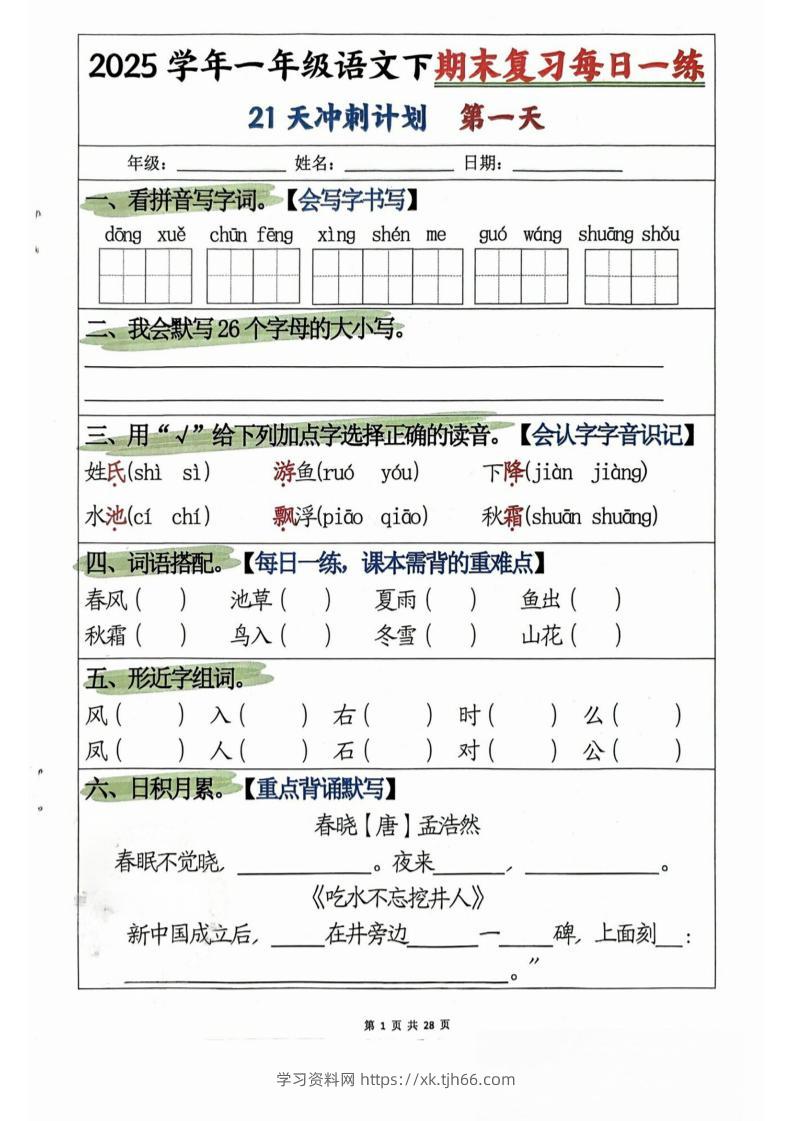 2025 学年一年级语文下期末复习每日一练
21 天冲刺计划 第一天
年级：____________ 姓名：____________ 日期：____________
一、看拼音写字词。【会写字书写】
dōng xuě chūn fēng xìng shén me guó wáng shuāng shǒu
二、我会默写 26 个字母的大小写。
三、用“√”给下列加点字选择正确的读音。【会认字字音识记】
姓氏(shì sì) 游鱼(ruó yóu) 下降(jiàn jiàng)
水池(cí chí) 飘浮(piāo qiāo) 秋霜(shuān shuāng)
四、词语搭配。【每日一练，课本需背的重难点】
春风（ ） 池草（ ） 夏雨（ ） 鱼出（ ）
秋霜（ ） 鸟入（ ） 冬雪（ ） 山花（ ）
五、形近字组词。
风（ ） 入（ ） 右（ ） 时（ ） 么（ ）
凤（ ） 人（ ） 石（ ） 对（ ） 公（ ）
六、日积月累。【重点背诵默写】
春晓【唐】孟浩然
春眠不觉晓，____________。夜来______，____________。
《吃水不忘挖井人》
新中国成立后，_____在井旁边______一_____碑，上面刻__：
____________________________________。”
第 1 页 共 28 页
学习资料网 https://xk.tjh66.com